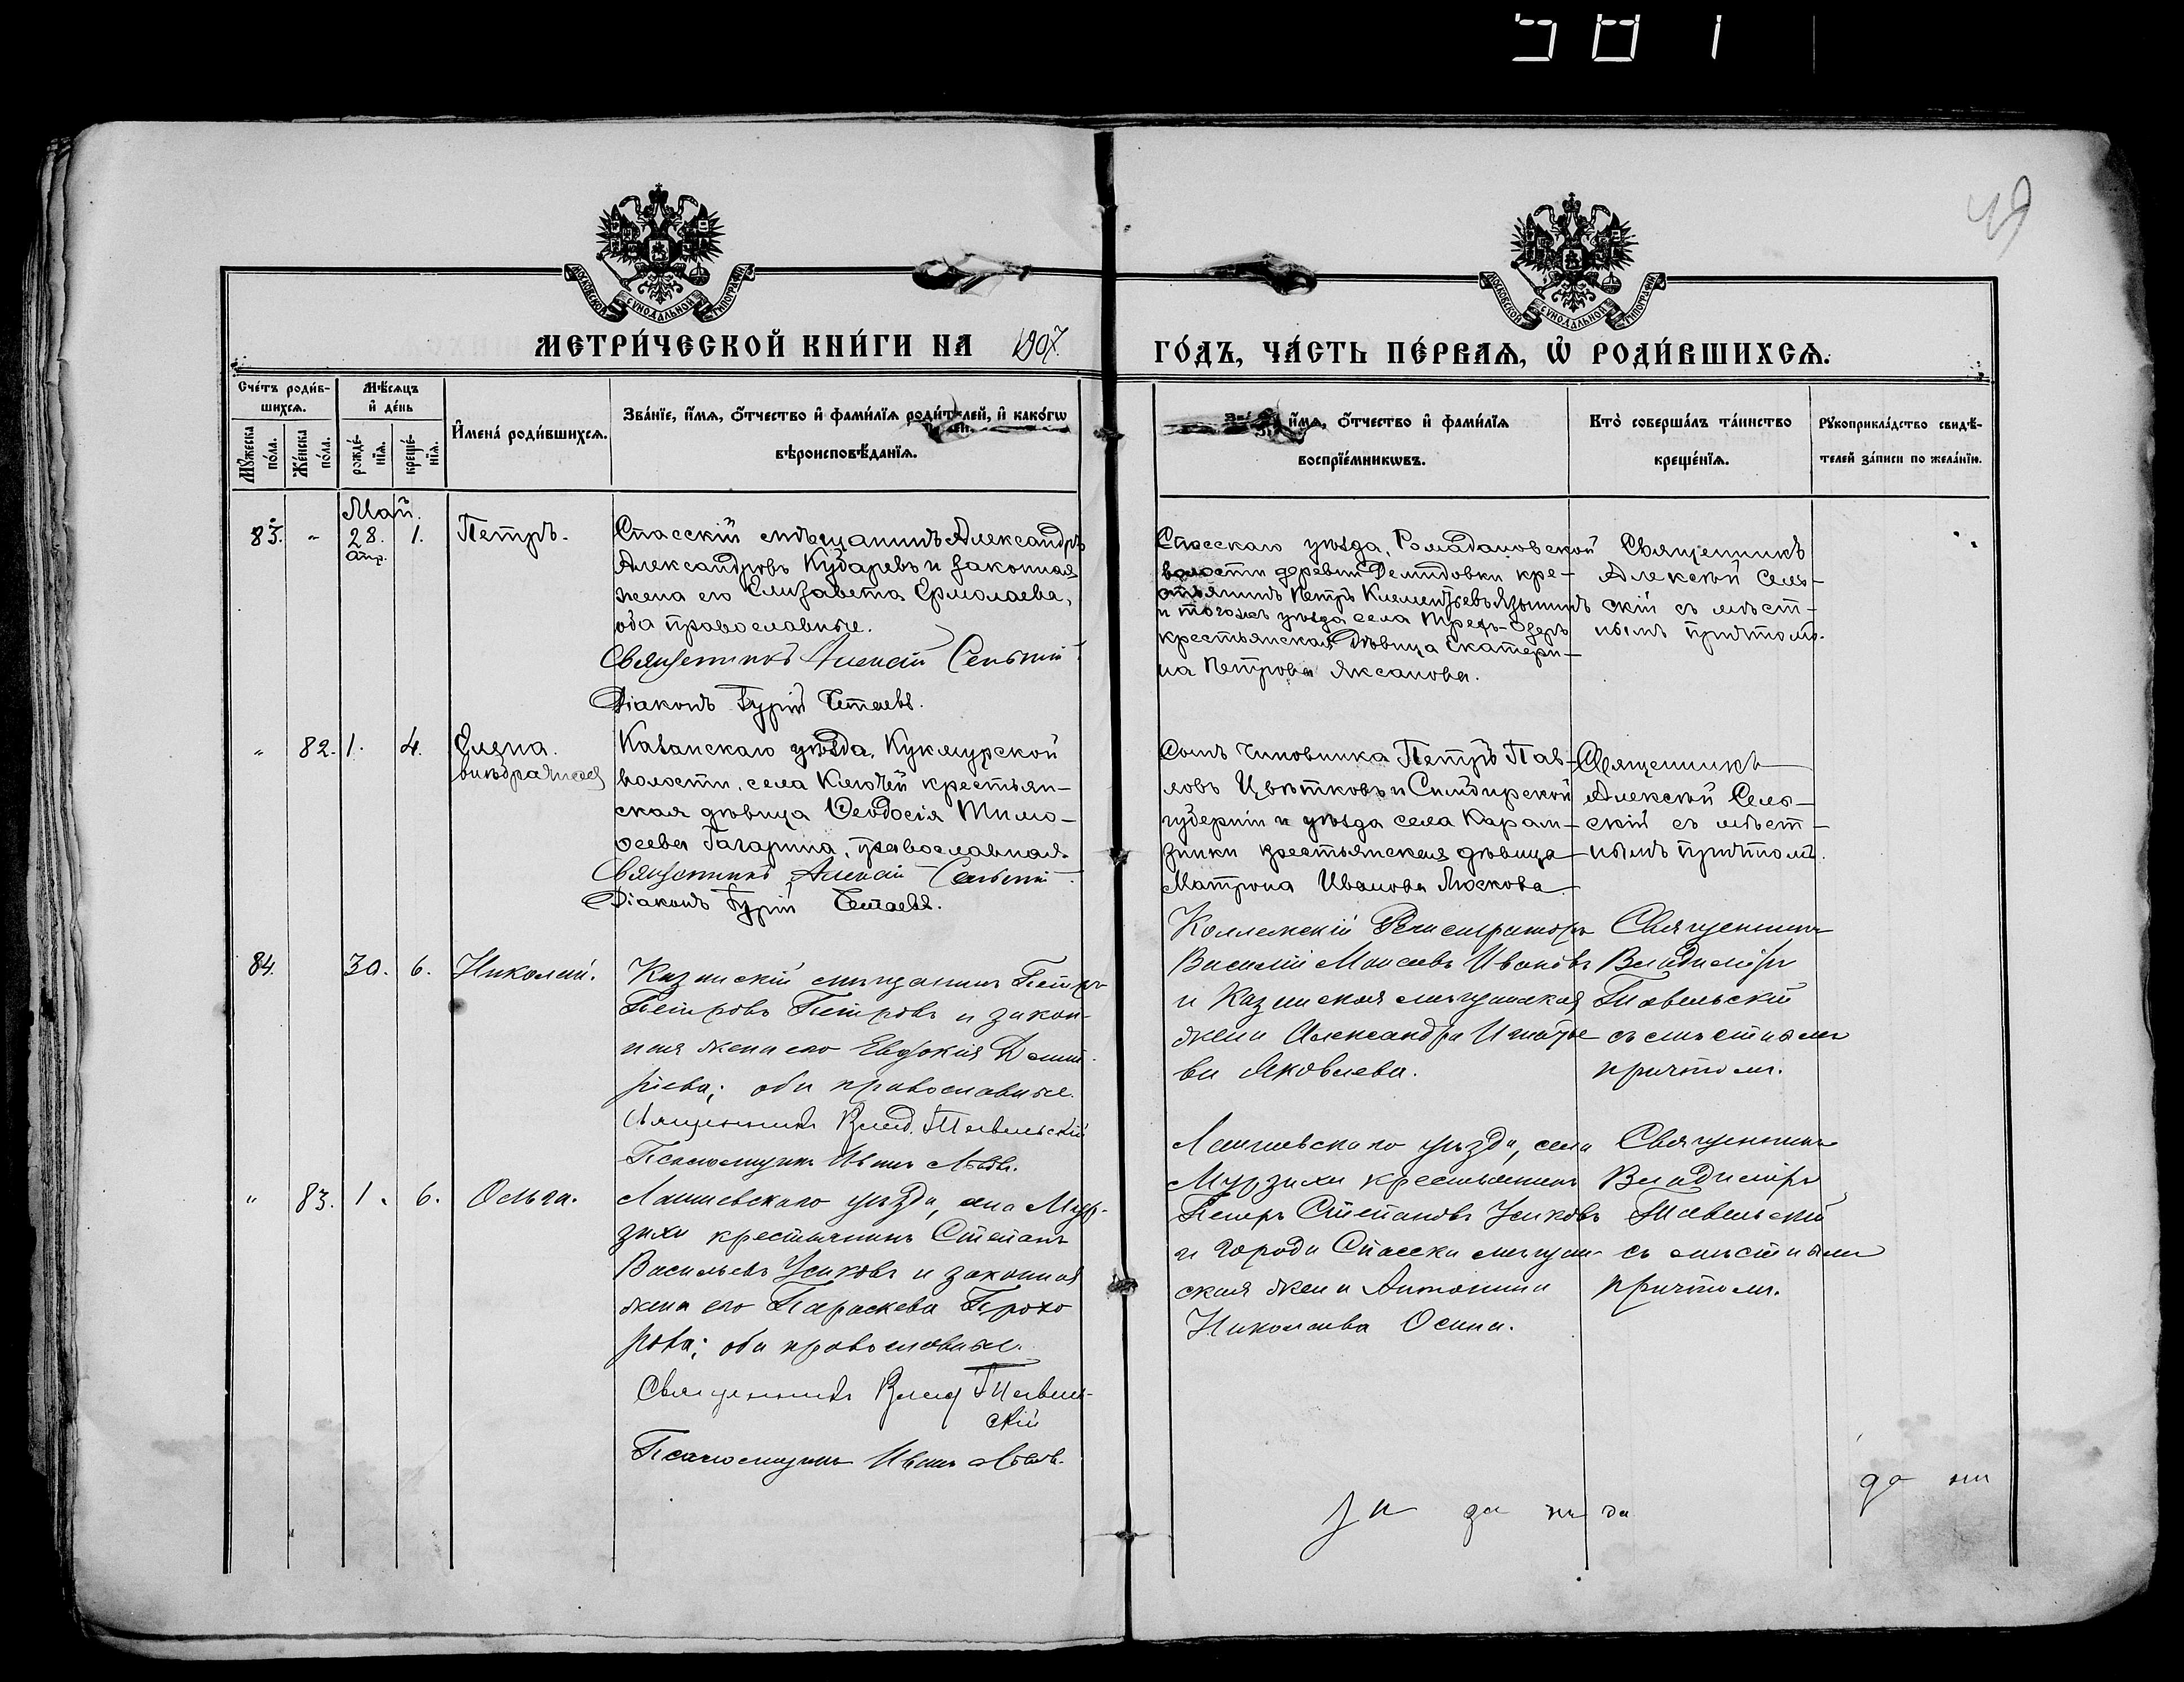 581
49
МОСКОВСКОЙ СѴНОДАЛЬНОЙ ТИПОГРАФІИ
МОСКОВСКОЙ СѴНОДАЛЬНОЙ ТИПОГРАФІИ
МЕТРИ́ЧЕСКОЙ КНИ́ГИ НА 1907.
ГО́ДЪ, ЧА́СТЬ ПЕ́РВАѦ, Ѽ РОДИ́ВШИХСѦ.
Сче́тъ роди́в-
шихсѧ.
Мꙋ́жеска по́ла.
Же́нска по́ла.
Мѣ́сѧцъ
и҆ де́нь
рожде́-
нїѧ.
креще́-
нїѧ.
И҆мена́ роди́вшихсѧ.
Зва́нїе, и҆́мѧ, ѻ҆́тчество и҆ фами́лїѧ роди́телей, и҆ како́гѡ
вѣроисповѣ́данїѧ.
и҆́мѧ, ѻ҆́тчество и҆ фами́лїѧ
воспрїе́мникѡвъ.
Кто̀ соверша́лъ та́инство
креще́нїѧ.
Рꙋкоприкла́дство свидѣ́-
телей за́писи по жела́нїю.
Май.
83. " 28. 1. Петръ.
апр.
Спасскій мѣщанинъ Александръ
Александровъ Кударевъ и законная
жена его Елизавета Ермолаева,
оба православные.
Священникъ Алексій Сельскій
Діаконъ Гурій Четаевъ.
Спасскаго уѣзда, Ромадановской
волости деревни Демидовки кре-
стьянинъ Петръ Клементьевъ Языникъ
и того же уѣзда села Трехъ-Озеръ
крестьянская дѣвица Екатери-
на Петрова Аксанова.
Священникъ
Алексѣй Сель-
скій съ мѣст-
нымъ причтомъ.
" 82. 1. 4. Елена.
внѣбрачная
Казанскаго уѣзда, Кукмурской
волости, села Ключей крестьян-
ская дѣвица Ѳеодосія Тимо-
ѳеева Гагарина, православная.
Священникъ Алексій Сельскій.
Діаконъ Гурій Четаевъ.
Сынъ чиновника Петръ Пав-
ловъ Цвѣтковъ и Симбирской
губерніи и уѣзда села Карам-
зинки крестьянская дѣвица
Матрона Иванова Люскова
Священникъ
Алексѣй Сель-
скій съ мѣст-
нымъ причтомъ.
84. 30. 6. Николай.
Казанскій мѣщанинъ Петръ
Петровъ Петровъ и закон-
ная жена его Евдокія Дмит-
ріева; оба православные.
Священникъ Влад. Тавельскій
Псаломщикъ Иванъ Львовъ.
Коллежскій Регистраторъ
Василій Моисеевъ Ивановъ
и Казанская мѣщанская
жена Александра Игнатье-
ва Яковлева.
Священникъ
Владиміръ
Тавельскій
съ мѣстнымъ
причтомъ.
" 83. 1. 6. Ольга.
Лаишевскаго уѣзда, села Мур-
зихи крестьянинъ Степанъ
Васильевъ Усиковъ и законная
жена его Параскева Прохо
рова; оба православные.
Священникъ Влад Тавель-
скій
Псаломщикъ Иванъ Львовъ.
Лаишевскаго уѣзда, села
Мурзихи крестьянинъ
Петръ Степановъ Усиковъ
и города Спасска мѣщан-
ская жена Антонина
Николаева Осина.
Священникъ
Владиміръ
Тавельскій
съ мѣстнымъ
причтомъ.